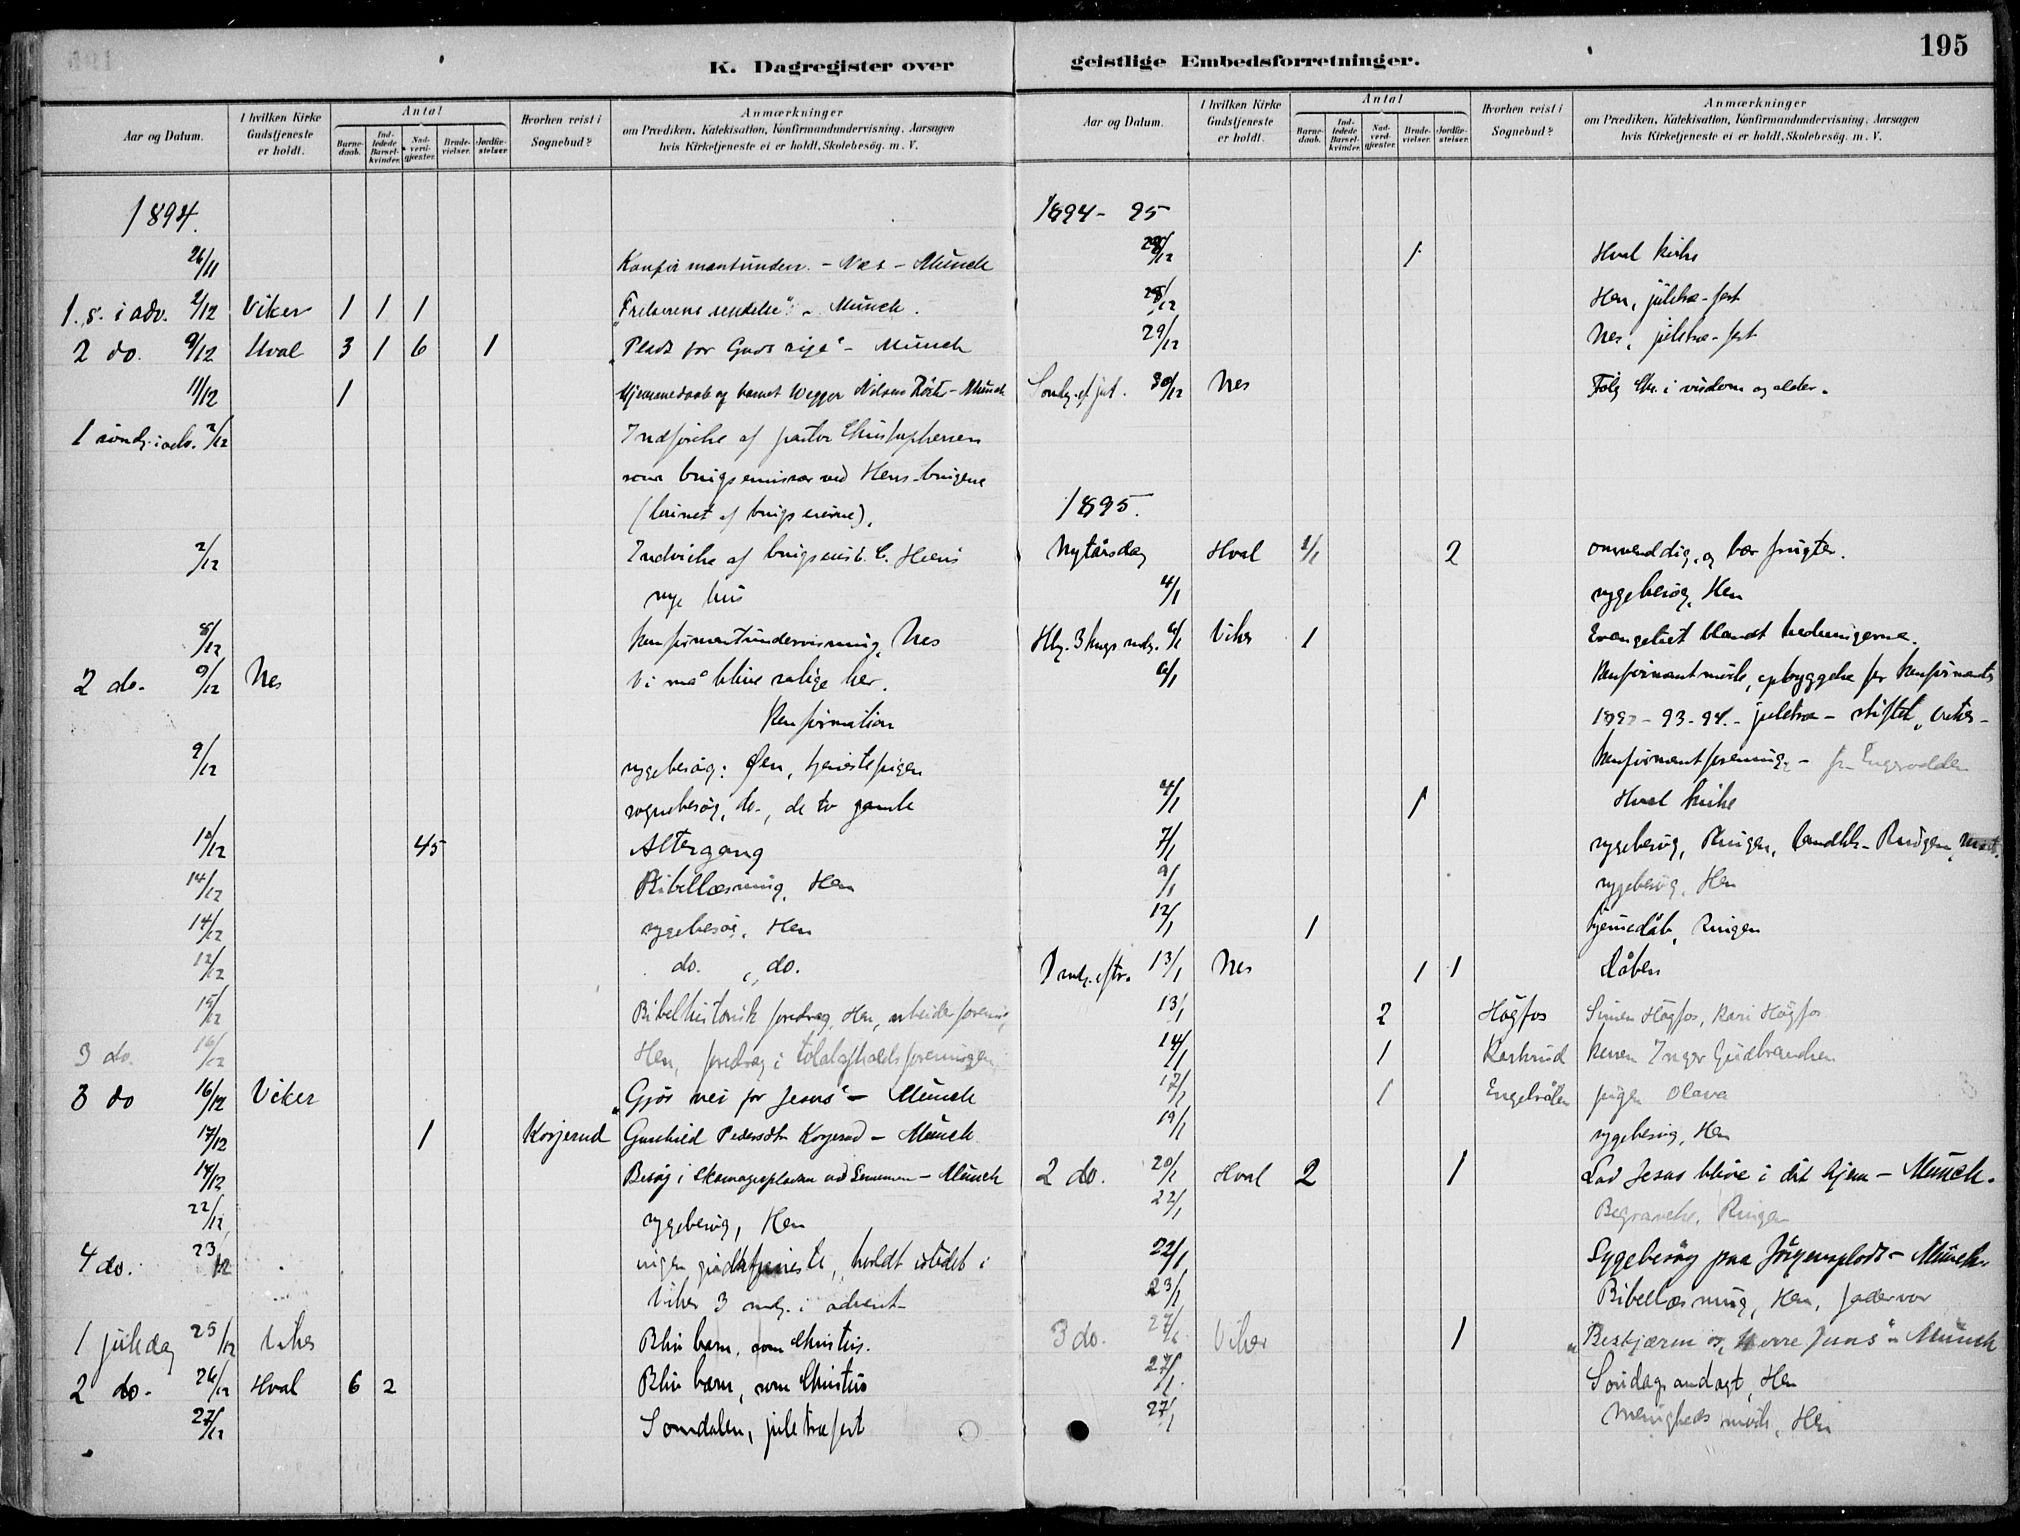 195
K. Dagregister over geistlige Embedsforretninger.
Aar og Datum.
I hvilken Kirke Gudstjeneste er holdt.
Antal
Barne-daab.
Ind-ledede Barsel-kvinder.
Nad-verd-gjæster.
Brude-vielser.
Jordfæ-stelser.
Hvorhen reist i Sognebud?
Anmærkninger
om Prædiken, Katekisation, Konfirmandundervisning, Aarsagen
hvis Kirketjeneste ei er holdt, Skolebesøg. m. V.
1894.
26/11 - Næs - Münch
1. s. i adv. 2/12 Viker 1 1 1 "Frelserens sendelse" - Münch.
2 do. 9/12 Hval 3 1 6 1 "Plads for Guds rige" - Münch
11/12 1 Hjemmedaab af barnet Nilsens - Münch
1 sønd. i adv. 2/12 Indførelse af pastor Christophersen
som ved Hens-brugene
2/12 Indvielse af Hens
nye hus
8/12 konfirmantundervisning, Nes
2 do. 9/12 Nes Vi må blive salige her.
Konfirmation
9/12 sygebesøg: Øen, tjenestepigen
sognebesøg, do., de to gamle
10/12 45 Altergang
14/12 Bibellæsning, Hen
14/12 sygebesøg, Hen
12/12 do. , do.
15/12 Bibelhistorisk foredrag, Hen,
3 do. 16/12 Hen, foredrag i totalafholdsforeningen
3 do 16/12 Viker "Gjør vei for Jesus" - Münch
17/12 1 Korjerud Gunhild Pedersdtr Korjerud - Münch
14/12 Besøg i ved - Münch
22/12 sygebesøg, Hen
4 do. 23/12 ingen gudstjeneste, holdt istedet i
Viker 3 sndg. i advent
1 juledag 25/12 Viker Bliv barn, som Christus.
2 do. 26/12 Hval 6 2 Bliv barn, som Christus
27/12 Somdalen, juletræfest
Aar og Datum.
I hvilken Kirke Gudstjeneste er holdt.
Antal
Barne-daab.
Ind-ledede Barsel-kvinder.
Nad-verd-gjæster.
Brude-vielser.
Jordfæ-stelser.
Hvorhen reist i Sognebud?
Anmærkninger
om Prædiken, Katekisation, Konfirmandundervisning, Aarsagen
hvis Kirketjeneste ei er holdt, Skolebesøg. m. V.
1894 - 95
28/12 1 Hval kirke
28/12 Hen, juletræ-fest
29/12 Nes, juletræ-fest
Søndg. ef. jul. 30/12 Nes Følg Chr. i visdom og alder.
1895.
Nytårsdag Hval 1/1 2 omvend dig, og bær frugter.
4/1 sygebesøg, Hen
Hlg. 3 kngs sndg. 6/1 Viker 1 Evangeliet blandt hedningerne.
6/1 Konfirmantmøde, opbyggelse for konfirmanter
- 93 - 94. - juletræ - stiftet Viker -
konfirmantforening. -
4/1 1 Hval kirke
7/1 sygebesøg, Ringen,
9/1 sygebesøg, Hen
12/1 1 hjemedåb, Ringen
1 sndg. eftr. 13/1 Nes 1 1 Dåben
13/1 2 Høgfos Simen Høgfos, Kari Høgfos
14/1 1 konen Inger Gudbrandsen
17/1 1 pigen Olava
19/1 sygebesøg, Hen
2 do. 20/1 Hval 2 1 Lad Jesus blive i dit hjem - Münch.
22/1 Begravelse, Ringen
22/1 Sygebesøg paa - Münch.
23/1 Bibellæsning, Hen, fadervor
3 do. 27/1 Viker 1 "Beskjærm os, Herre Jesus" - Münch
27/1 Søndagsandagt, Hen
27/1 Menighedsmøde, Hen